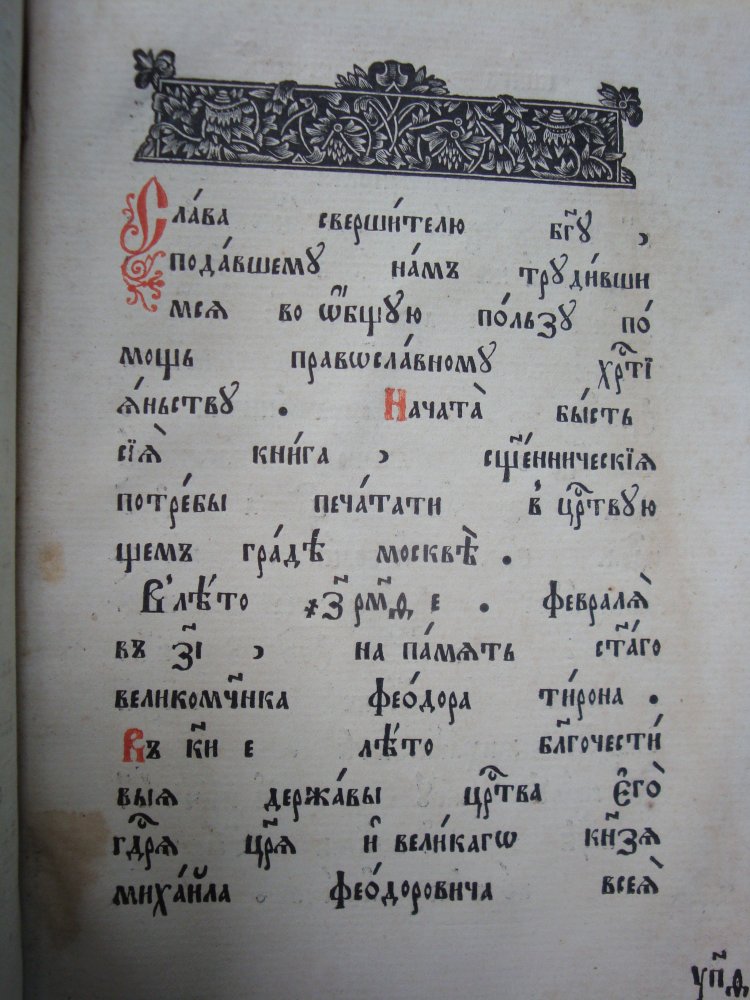 Сла́ва сверши́телю бг҃ꙋ ,
пода́вшемꙋ на́мъ трꙋди́вши
мсѧ во ѻ҆́бщꙋю по́льзꙋ по́
мощь правѡсла́вномꙋ хрⷭ҇тї
ѧ́ньствꙋ . Начата̀ бы́сть
сїѧ̀ кни́га , сщ҃е́нническїѧ
потре́бы печа́тати в̾ црⷭ҇твꙋю
щемъ гра́дѣ москвѣ̀ .
В̾лѣ́то ҂з҃рм҃д е . февралѧ̀
въ з҃ї , на па́мѧть ст҃а́го
великомч҃нка фео́дора тирона .
Въ к҃и е лѣ́то бл҃гочести́
выѧ держа́вы црⷭ҇тва є҆гѡ̀
гдⷭ҇рѧ цр҃ѧ и҆ вели́кагѡ кн҃зѧ
михаи́ла фео́доровича всеѧ̀
уп҃д